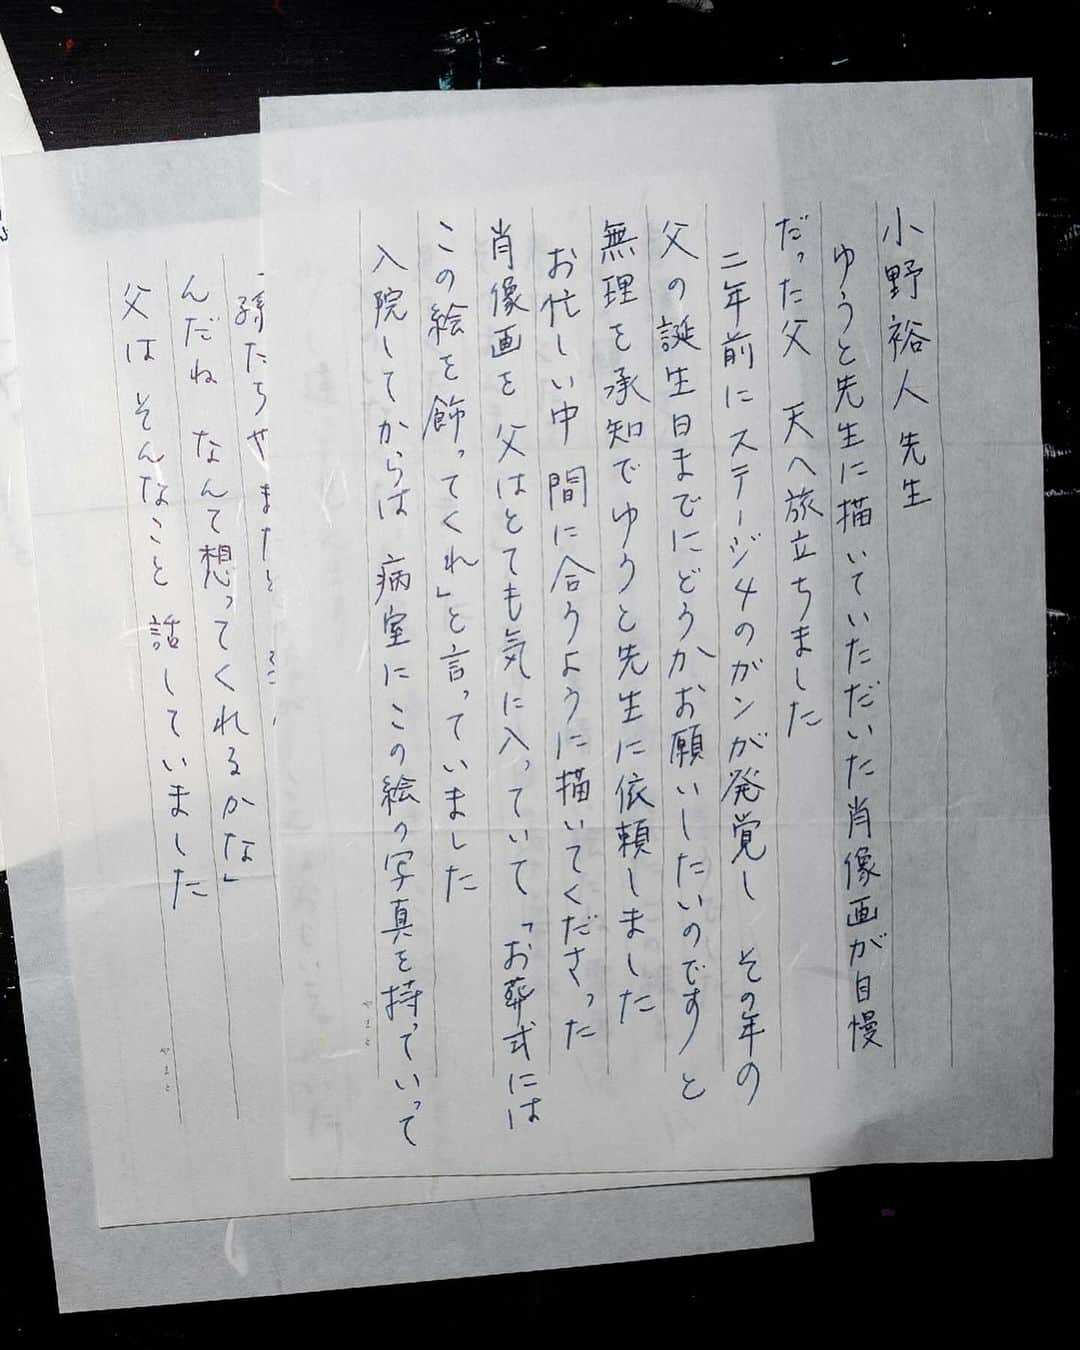 小野裕人先生
ゆうと先生に描いていただいた肖像画が自慢
だった父 天へ旅立ちました
二年前にステージ4のガンが発覚し その年の
父の誕生日までにどうかお願いしたいのです と
無理を承知でゆうと先生に依頼しました
お忙しい中 間に合うように描いてくださった
肖像画を 父はとても気に入っていて 「お葬式には
この絵を飾ってくれ」と言っていました
入院してからは 病室にこの絵の写真を持っていって
やまと
孫たちや またと
んだね なんて想ってくれるかな」
父は そんなこと 話していました
やまと